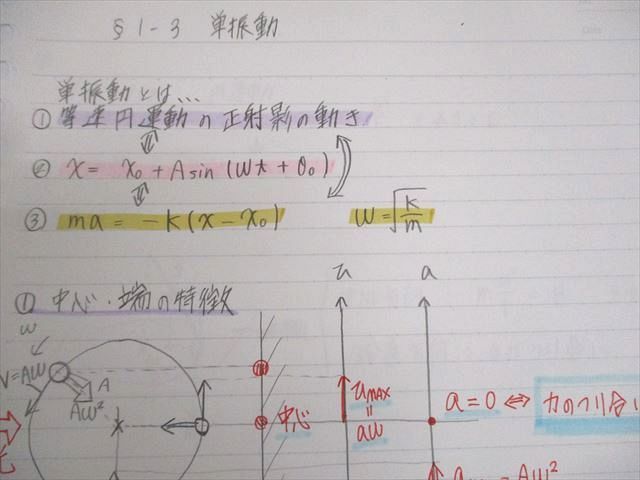 §1-3 単振動
単振動とは...
① 等速円運動の正射影の動き
② x = x₀ + A sin (ωt + θ₀)
③ ma = -k(x - x₀) ω = √(k/m)
① 中心・端の特徴
v a
ω
V=Aω
A
Aω²
中心
vMAX
=
aω
a = 0 ⇔ 力のつり合い
= Aω²